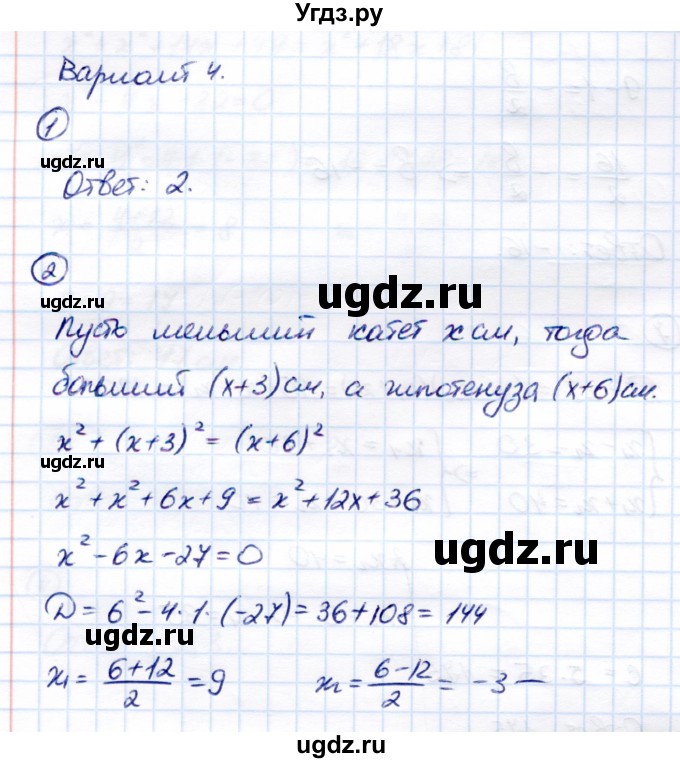 Угдз.ру
Вариант 4.
①
ugdz.ru
Ответ: 2.
②
ugdz.ru
ugdz.ru
Пусть меньший катет x см, тогда
больший (x+3) см, а гипотенуза (x+6) см.
x² + (x+3)² = (x+6)²
ugdz.ru
x² + x² + 6x + 9 = x² + 12x + 36
x² - 6x - 27 = 0
ugdz.ru
D = 6² - 4·1·(-27) = 36 + 108 = 144
ugdz.ru
x₁ = (6+12)/2 = 9 x₂ = (6-12)/2 = -3 —
ugdz.ru